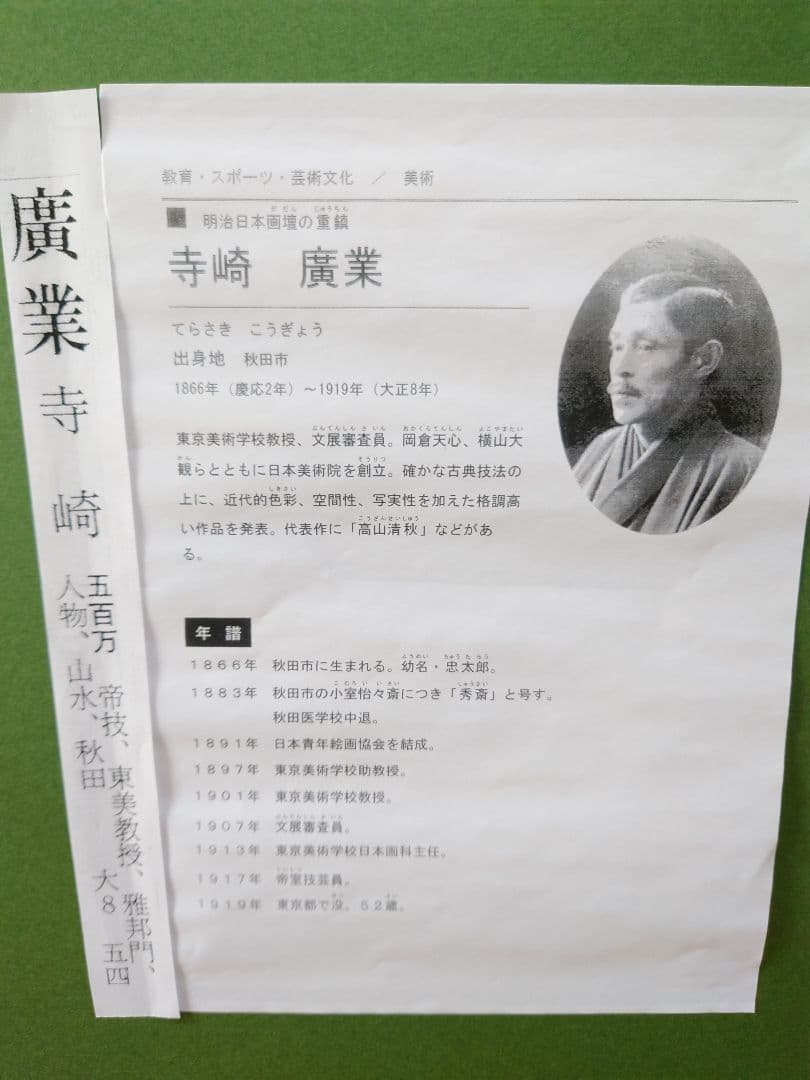 教育・スポーツ・芸術文化 ／ 美術
明治日本画壇の重鎮
寺崎 廣業
てらさき こうぎょう
出身地 秋田市
1866年（慶応2年）～1919年（大正8年）
東京美術学校教授、文展審査員。岡倉天心、横山大
観らとともに日本美術院を創立。確かな古典技法の
上に、近代的色彩、空間性、写実性を加えた格調高
い作品を発表。代表作に「高山清秋」などがあ
る。
年譜
1866年 秋田市に生まれる。幼名・忠太郎。
1883年 秋田市の小室怡々斎につき「秀斎」と号す。
秋田医学校中退。
1891年 日本青年絵画協会を結成。
1897年 東京美術学校助教授。
1901年 東京美術学校教授。
1907年 文展審査員。
1913年 東京美術学校日本画科主任。
1917年 帝室技芸員。
1919年 東京都で没。52歳。
廣業 寺崎
五百万 帝技、東美教授、雅邦門、
人物、山水、秋田 大8 五四